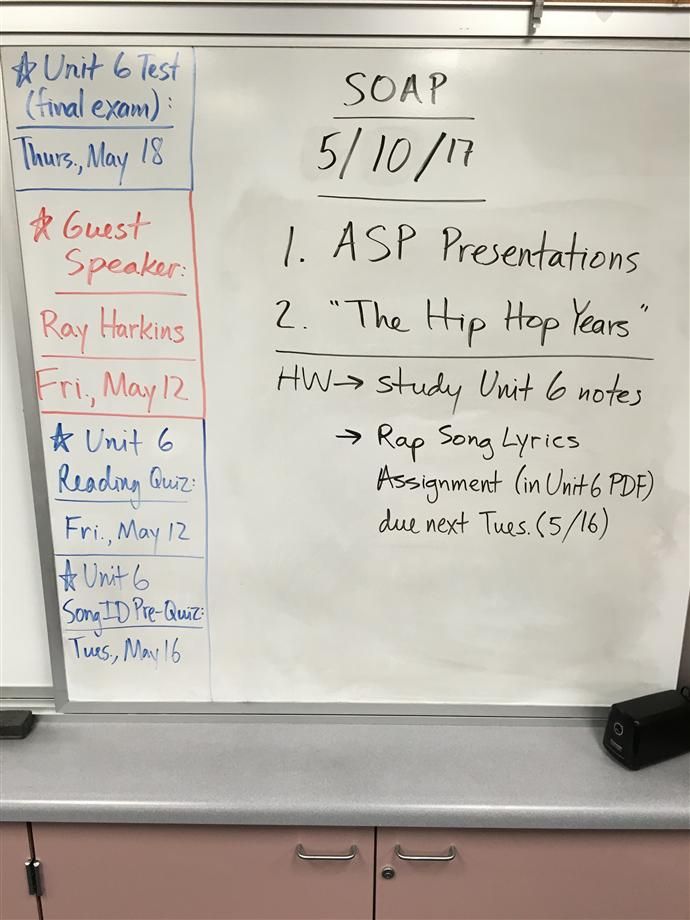 ☆ Unit 6 Test
(final exam):
Thurs., May 18
☆ Guest
Speaker:
Ray Harkins
Fri., May 12
☆ Unit 6
Reading Quiz:
Fri., May 12
☆ Unit 6
Song ID Pre-Quiz:
Tues., May 16
SOAP
5/10/17
1. ASP Presentations
2. "The Hip Hop Years"
HW→ study Unit 6 notes
→ Rap Song Lyrics
Assignment (in Unit 6 PDF)
due next Tues. (5/16)